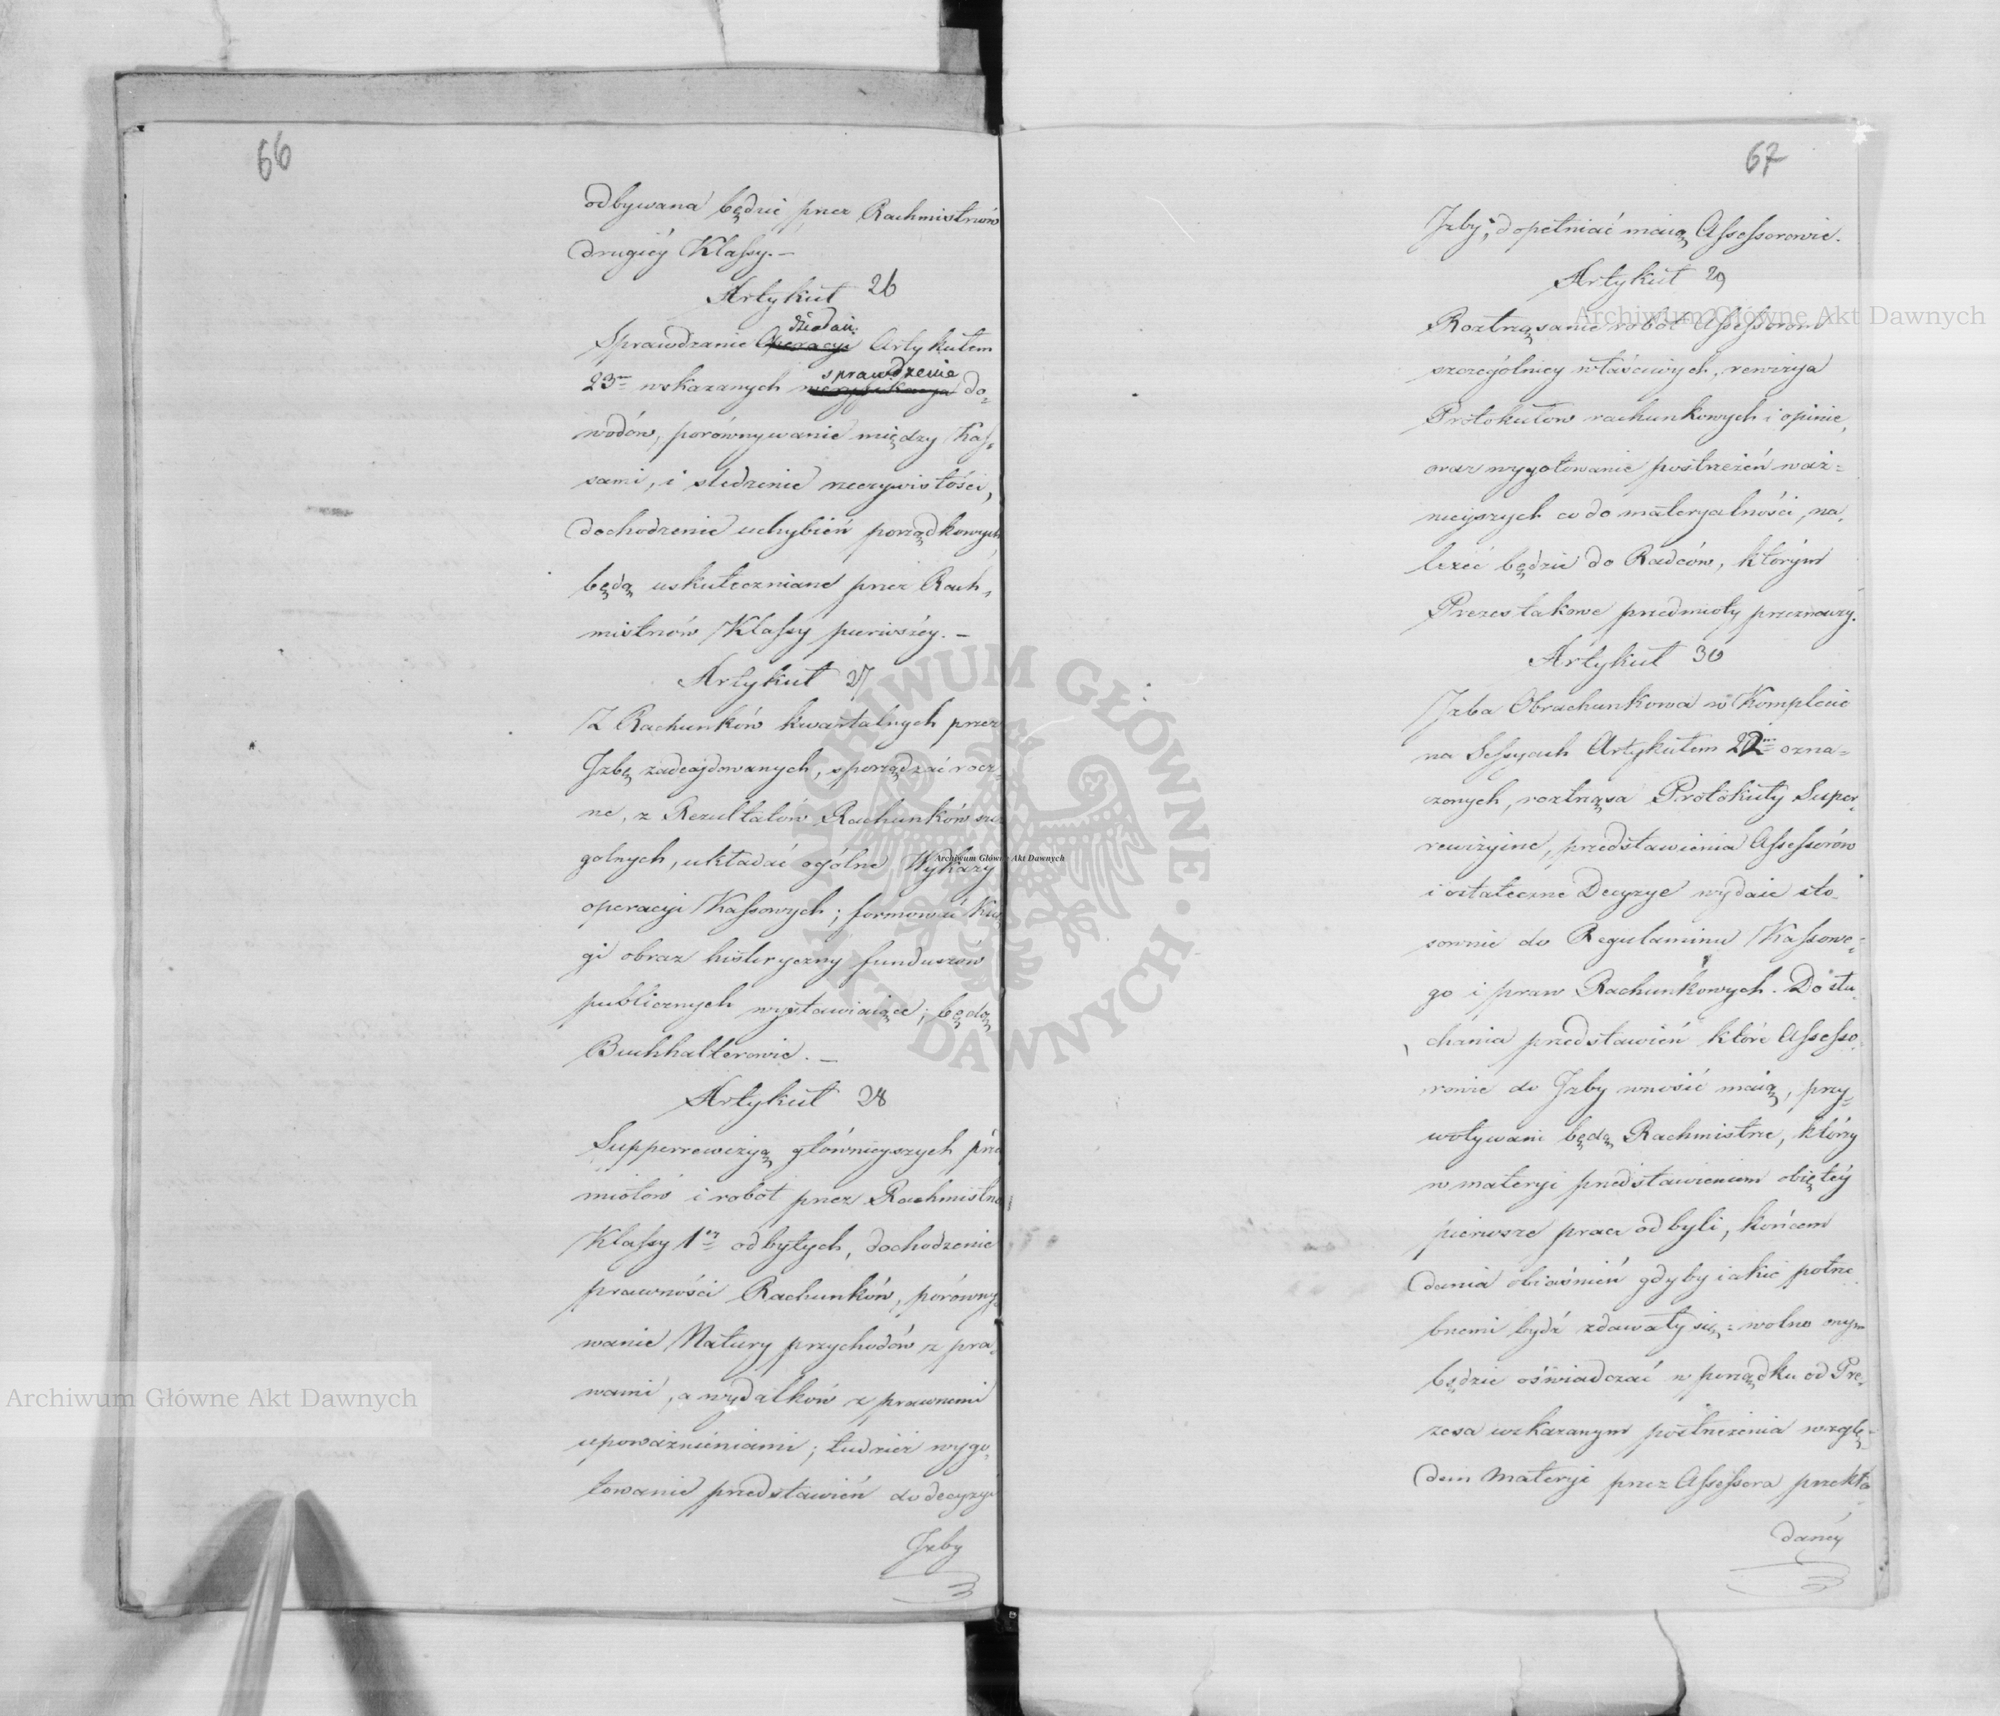 66
odbywana będzie przez Rachmistrzów
drugiéy Klassy. –
Artykuł 26
działań
Sprawdzanie Operacyi Artykułem
sprawdzenie
23m wskazanych weryfikacya do=
wodów, porównywanie między Kas=
sami, i sledzenie rzeczywistości,
dochodzenie uchybień porządkowych
będą uskuteczniane przez Rach=
mistrzów Klassy pierwszéy. –
Artykuł 27
Z Rachunków kwartalnych przez
Izbę zadecydowanych, sporządzać rocz=
ne, z Rezultatów Rachunków szcze
gólnych, układać ogólne Wykazy
operacyi Kassowych; formować Księ
gi obraz historyczny funduszów
publicznych wystawiaiące; będą
Buchhalterowie. –
Artykuł 28
Supperrewizyą głównieyszych prze
miotów i robót przez Rachmistrzów
Klassy 1éy odbytych, dochodzenie
prawności Rachunków, porówny=
wanie Natury przychodów z pra=
wami, a wydatków z prawnemi
upoważnieniami; tudzież wygo=
towanie przedstawień do decyzyi
Izby
67
Izby, dopełniać maią Assessorowie.
Artykuł 29
Roztrząsanie robót Assessorom
szczególniey właściwych, rewizya
Protokułów rachunkowych i opinie,
oraz wygotowanie postrzeżeń waż=
nieyszych co do materyalności, na=
leżeć będzie do Radców, którym
Prezes takowe przedmioty przeznaczy.
Artykuł 30
Izba Obrachunkowa w Komplecie
na Sessyach Artykułem 22m ozna=
czonych, roztrząsa Protokuły Super=
rewizyine, przedstawienia Assessorów
i ostateczne Decyzye wydaie sto=
sownie do Regulaminu Kassowe=
go i praw Rachunkowych. Do słu=
chania przedstawień które Assesso=
rowie do Izby wnosić maią, przy=
woływani będą Rachmistrze, którzy
w materyi przedstawieniem obiętéy
pierwsze prace odbyli, końcem
dania obiaśnień gdyby iakie potrze
bnemi bydź zdawały się: wolno onym
będzie oświadczać w porządku od Pre=
zesa wskazanym postrzeżenia wzglę=
dem Materyi przez Assessora przekła=
danéy
Archiwum Główne Akt Dawnych
Archiwum Główne Akt Dawnych
Archiwum Główne Akt Dawnych
ARCHIWUM GŁÓWNE AKT DAWNYCH